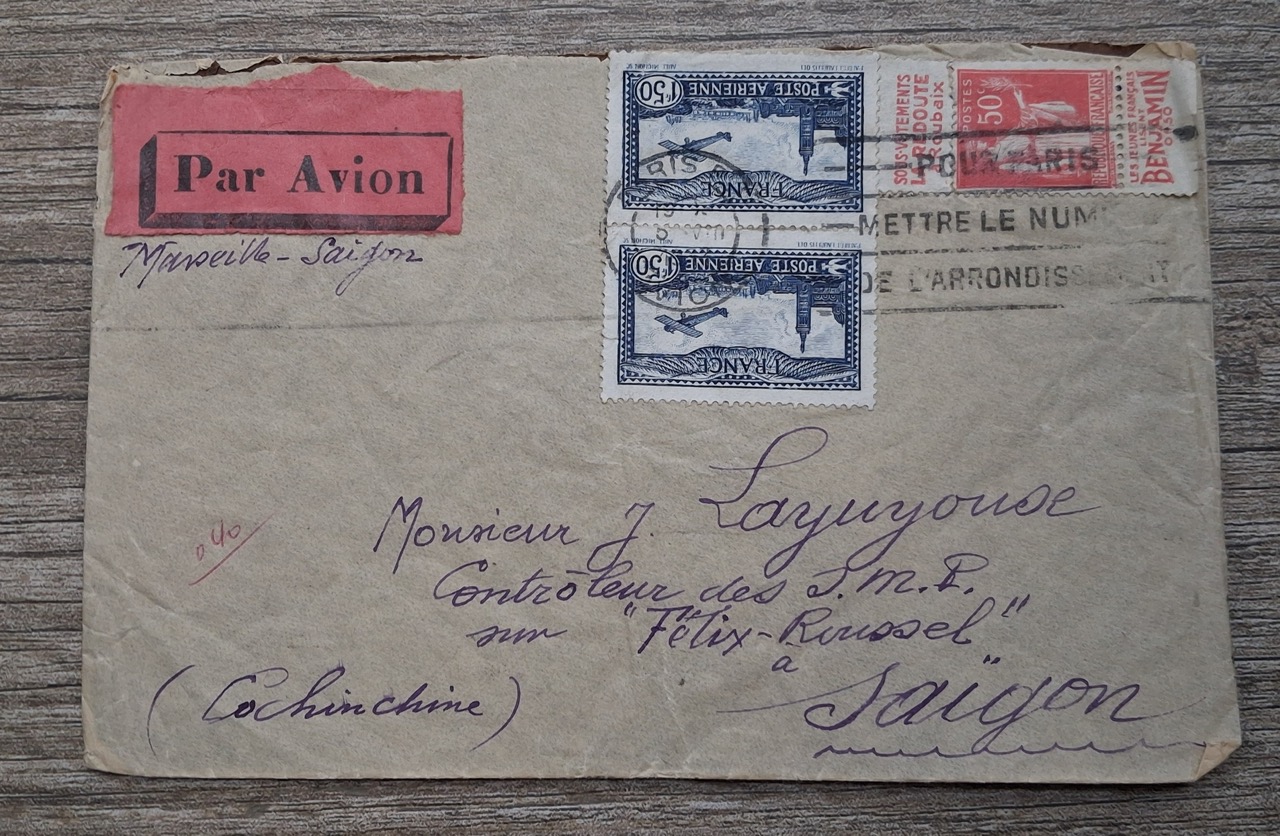 Par Avion
Marseille - Saigon
1F50
POSTE AÉRIENNE
FRANCE
1F50
POSTE AÉRIENNE
FRANCE
SOUS-VÊTEMENTS
LA REDOUTE
à Roubaix
POSTES
50c
REPUBLIQUE FRANÇAISE
LES JEUNES FRANÇAIS
LISENT
BENJAMIN
0F50
POUR PARIS
METTRE LE NUM
DE L'ARRONDISSEMENT
040
Monsieur J.
Contrôleur des S.M.P.
sur "Félix-Roussel"
à
Saïgon
(Cochinchine)